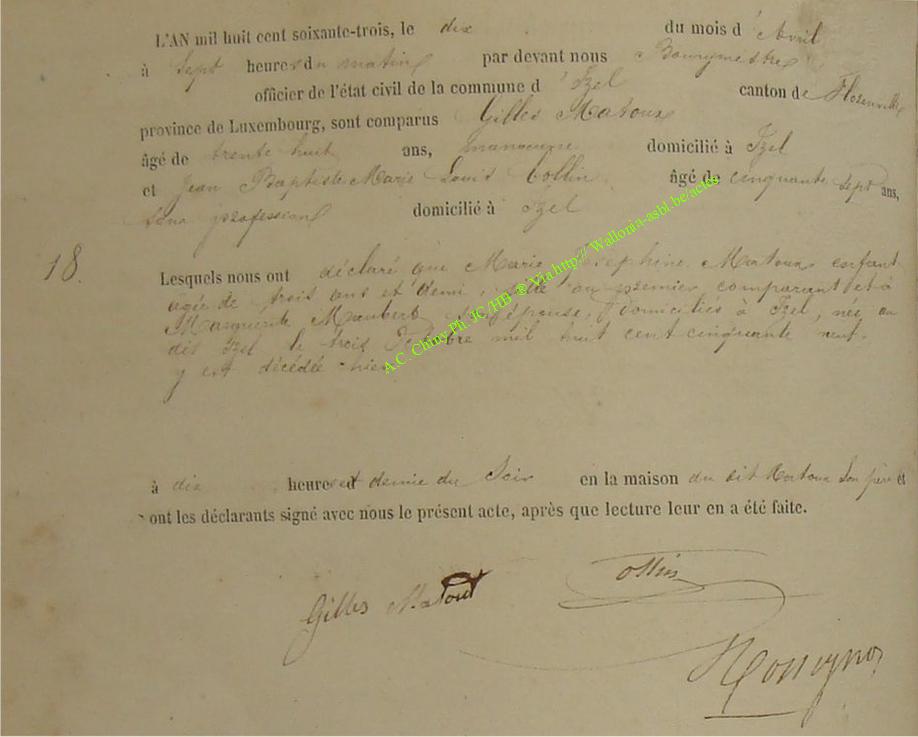 L'AN mil huit cent soixante-trois, le dix du mois d'Avril
à Sept heures du matin par devant nous Bourgmestre
officier de l'état civil de la commune d'Izel canton de Florenville
province de Luxembourg, sont comparus Gilles Matoux
âgé de trente huit ans, manoeuvre domicilié à Izel
et Jean Baptiste Marie Louis Collin âgé de cinquante sept ans,
sans profession domicilié à Izel
18. Lesquels nous ont déclaré que Marie Josephine Matoux enfant
agée de trois ans et demi, fille du premier comparant et à
Marguerite Maubert son épouse, domiciliés à Izel, née au
dit Izel le trois mil huit cent cinquante neuf.
y est décédée hier
à dix heures et demie du Soir en la maison du dit Matoux Son père et
ont les déclarants signé avec nous le présent acte, après que lecture leur en a été faite.
Gilles Matout
Collin
A.C. Chiny Ph. JC /HB ® Via http:// Wallonia-asbl.be/actes